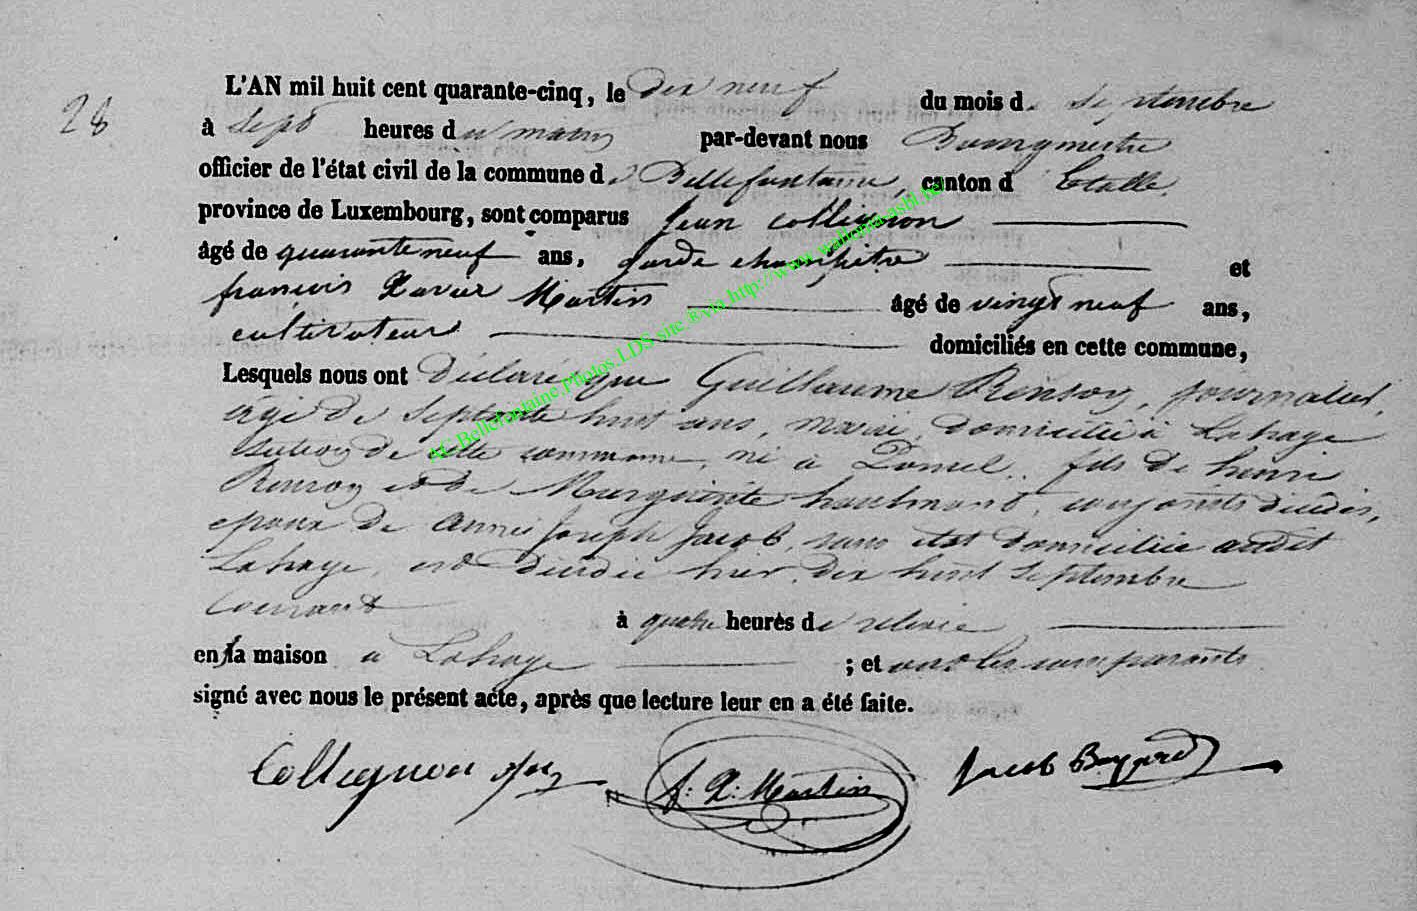 28
L'AN mil huit cent quarante-cinq, le dix neuf du mois de Septembre
à Sept heures du matin par-devant nous Bourgmestre
officier de l'état civil de la commune de Bellefontaine, canton d'Etalle,
province de Luxembourg, sont comparus Jean Collignon
âgé de quarante neuf ans, garde champêtre et
françois Xavier Martin âgé de vingt neuf ans,
cultivateur domiciliés en cette commune,
Lesquels nous ont Déclaré que Guillaume Rensoy, journalier,
âgé de Septante huit ans, marié, domicilié à Lahage
Section de cette commune, né à fils de henri
Rensoy et de Marguerite conjoints décédés,
epoux de Anne Joseph Jacob, sans état domiciliée audit
Lahage, est décédé hier dix huit Septembre
Courant à quatre heures de relevée
en la maison a Lahage ; et ont les comparants
signé avec nous le présent acte, après que lecture leur en a été faite.
Collignon J. X. Martin Jacob
AC.Bellefontaine.Photos.LDS site ®via http://www.wallonia-asbl.be/